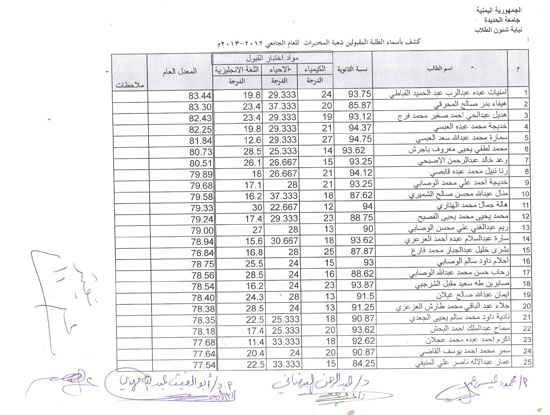 الجمهورية اليمنية
جامعة الحديدة
نيابة شئون الطلاب
كشف بأسماء الطلبة المقبولين شعبة المختبرات للعام الجامعي ٢٠١٢-٢٠١٣م
م اسم الطالب نسبة الثانوية مواد اختبار القبول المعدل العام ملاحظات
الكيمياء الاحياء اللغة الانجليزية
الدرجة الدرجة الدرجة
1 امنيات عبده عبدالرب عبد الحميد القباطي 93.75 24 29.333 19.8 83.44
2 هيفاء بدر صالح المحرقي 85.87 20 37.333 23.4 83.30
3 هديل عبدالحي احمد صغير محمد فرج 93.12 19 29.333 23.4 82.43
4 خديجة محمد عبده العبسي 94.37 21 29.333 19.8 82.25
5 سمارة محمد عبدالله سعد العبسي 94.75 27 29.333 12.6 81.84
6 محمد لطفي يحيى معروف باجرش 93.62 14 25.333 28.5 80.73
7 وعد خالد عبدالرحمن الاصبحي 93.25 15 26.667 26.1 80.51
8 رنا نبيل محمد عبده قابصي 94.12 21 26.667 18 79.89
9 خديجة احمد علي محمد الوصابي 93.25 21 28 17.1 79.68
10 منال عبدالله محسن صالح الشميري 87.62 18 37.333 16.2 79.58
11 هالة جمال محمد الهتاري 94 12 22.667 30 79.33
12 محمد يحيى محمد يحيى الفصيح 88.75 23 29.333 17.4 79.24
13 ريم عبدالغني علي محسن الوصابي 90 13 28 27 79.00
14 سارة عبدالسلام عبده احمد العزعزي 93.62 18 30.667 15.6 78.94
15 بشرى خليل عبدالجبار محمد فارع 87.87 25 28 16.8 78.84
16 احلام داود سالم الوصابي 93 15 24 25.5 78.75
17 رحاب حسن محمد عبدالله الوصابي 88.62 16 24 28.5 78.56
18 صابرين طه سعيد مقبل الشرجبي 93.87 23 24 16.2 78.54
19 ايمان عبدالله صالح غيلان 91.5 13 28 24.3 78.40
20 جلاء عبد الباقي محمد طارش العزعزي 91.25 13 24 28.5 78.38
21 نادية داود محمد سالم يحيى الجعدي 90.87 15 25.333 22.5 78.35
22 سماح عبدالملك احمد البحش 93.62 20 25.333 17.4 78.18
23 اكرم احمد عبده محمد عجلان 92.62 18 33.333 11.4 77.68
24 سمر محمد احمد يوسف القاضي 90.87 20 24 20.4 77.64
25 عمار عبدالاله ناصر علي المنيفي 84.25 15 33.333 22.5 77.54